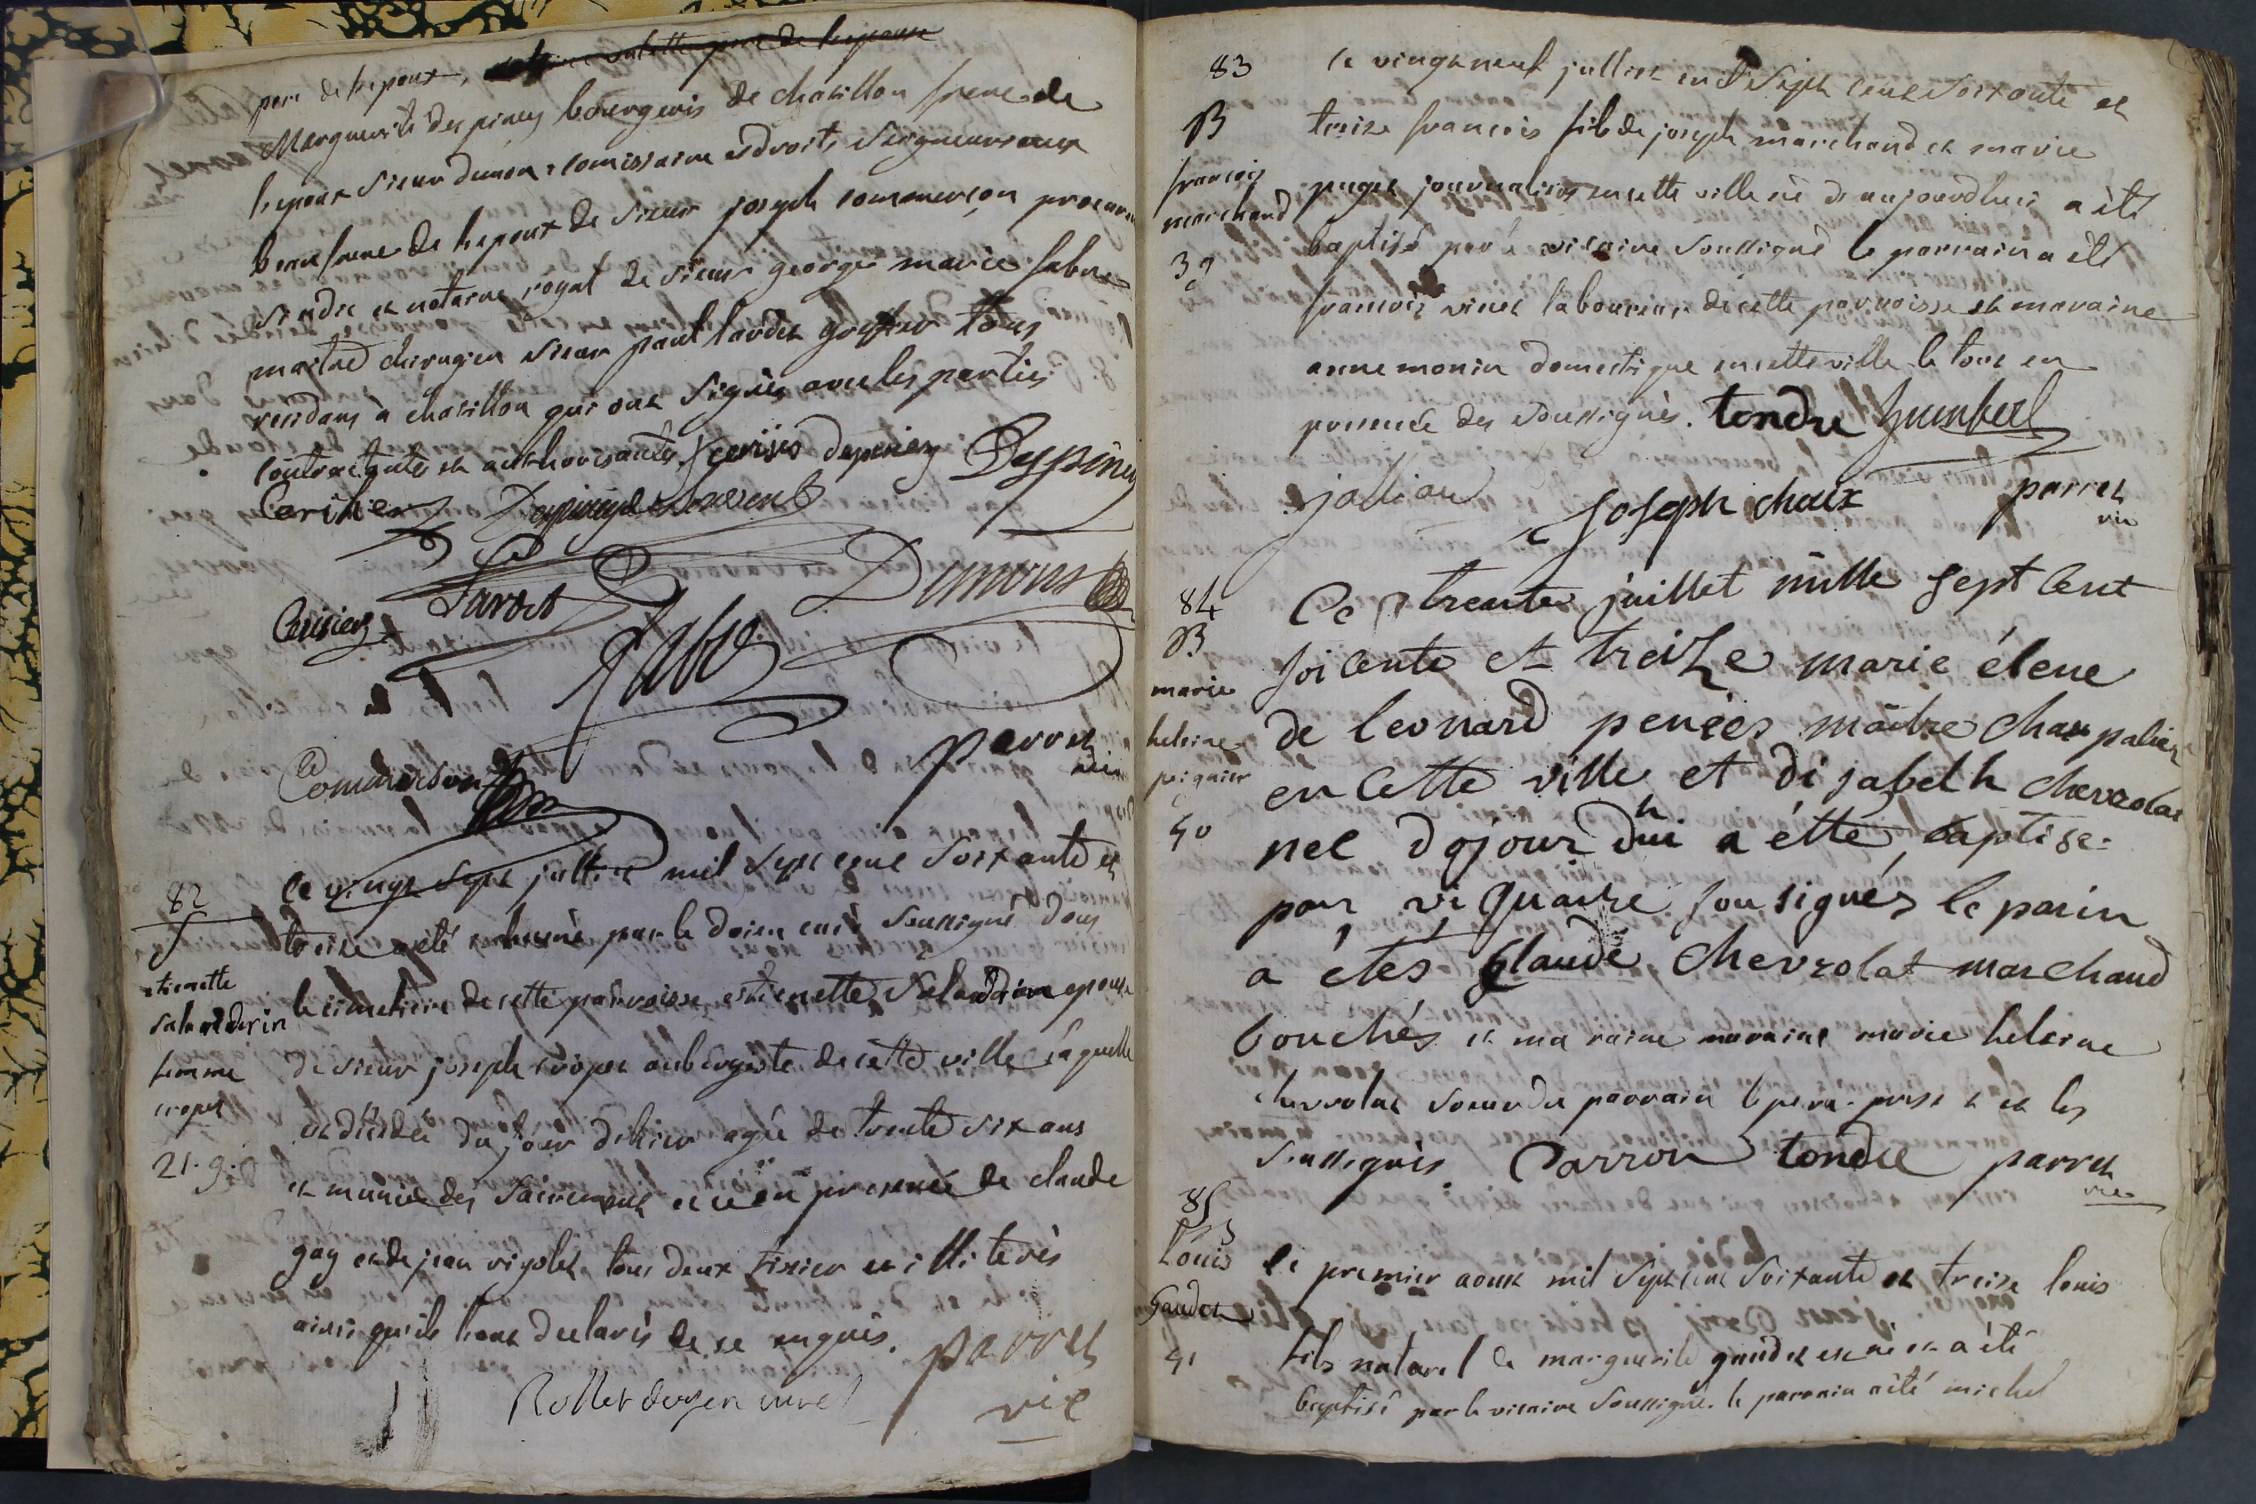 pere de lepoux,
Marguerite despiney bourgeois de chatillon frere de
lepoux Sieur dumon comissaire es droits Seigneuriaux
beaufrere de lepoux de Sieur joseph commerçon procureur
sindic et notaire royal de Sieur george marie fabre
maitre chirugien Sieur paul lardet greffier tous
residans a chatillon qui ont signés avec les parties
contractantes et authorisantes cerisier despiney Despiney
Cerisier
Cerisier Lardet Dumons
fabre
Commerson parret
vic
82
S
etienette
salanderin
femme
cropet
21. 9.
Le vingt sept juillet mil sept cent soixante et
treize a été inhumé par le doien curé soussigné dans
le cimetiere de cette parroisse, estienette Salandrin epouse
de sieur joseph cropet aubergiste de cette ville laquelle
est decedée du jour d'hier agée de trente six ans
et munie des sacremens et ce en presence de claude
gay et de jean rigolet tous deux tixier et illiterés
ainsi quils l'ont declarés de ce enquis. parret
vic
Rollet doyen curé
83
B
francois
marchand
39
Le vingt neuf juillet mil sept cent soixante et
treize francois fils de joseph marchand et marie
puget journaliers en cette ville né d'aujourdhui a été
baptisé par le vicaire soussigné le parrain a été
francois vinet laboureur de cette parroisse et maraine
anne monin domestique en cette ville le tout en
presence des soussignés. tondu humbert
joliand Joseph chaix parret
vic
84
B
marie
heleine
peignier
40
Ce trente juillet mille sept cent
soi cente et treize marie élene
de leonard penées maitre charpatier
en cette ville et di sabelh chevrolat
nee dojour dhui a étté baptise
par viquaire sousignés le parin
a étés Claude Chevrolat marchand
bouchés et ma raine maraine marie heleine
chevrolat soeur du parrain le pere present et les
soussignés. Carron tondu parret
vic
85
B
Louis
Gaudet
41
Le premier aoust mil sept cent soixante et treize louis
fils naturel de marguerite gaudet est né et a été
baptisé par le vicaire soussigné. le parrain a été michel